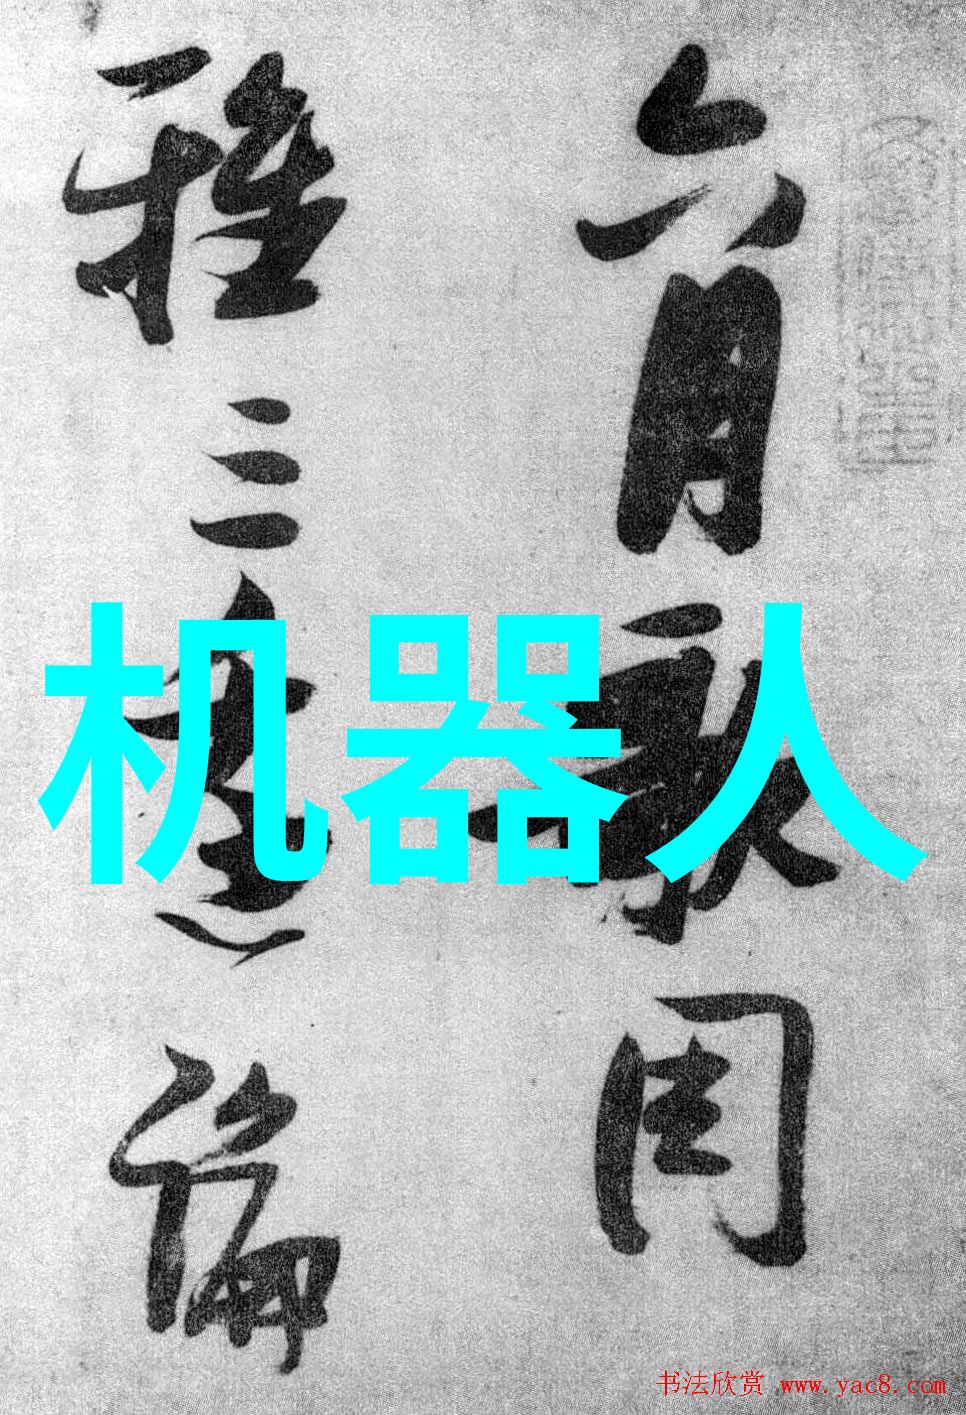 六月歌周
雅三
机器人
书法欣赏 www.yac8.com